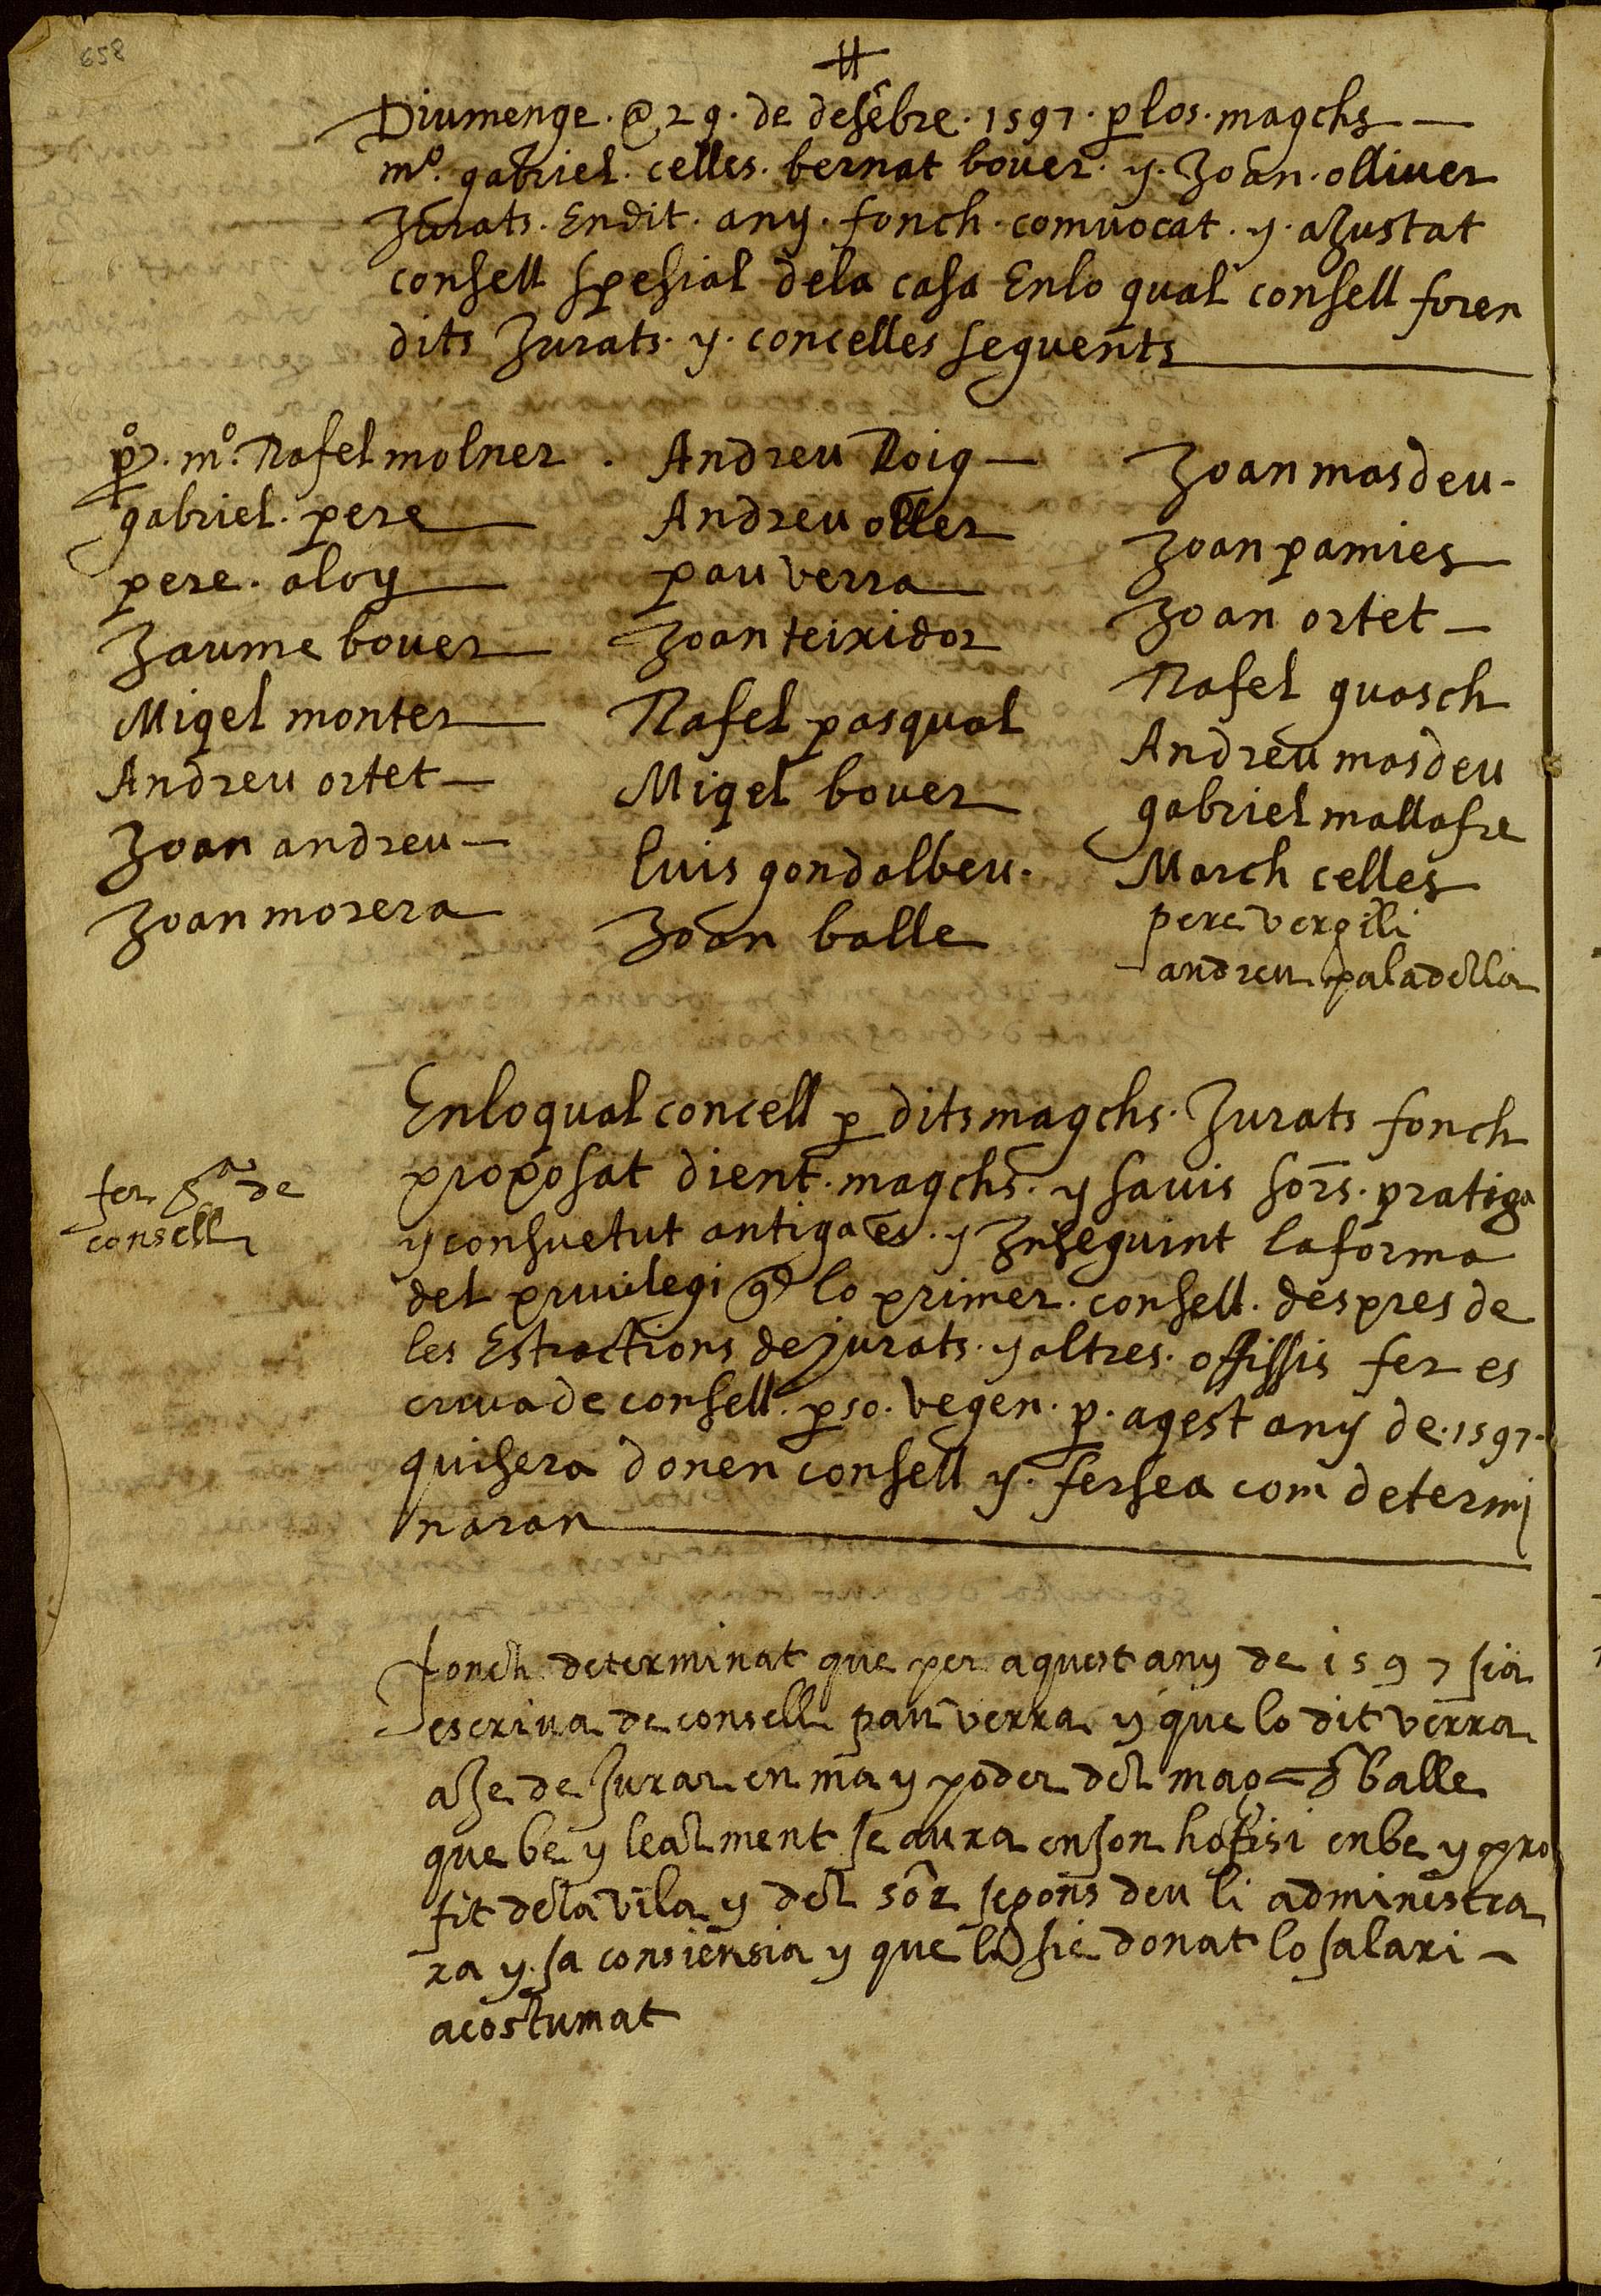 658
Diumenge. @ 29. de desēbre. 1597. p los. magchs
mº. gabriel. celles. bernat bover. y. Joan. olliver
Jurats. Endit. any. fonch. comvocat. y. aJustat
consell spesial dela casa Enlo qual consell foren
dits Jurats. y. concelles seguents
pº. mº. Rafel molner
gabriel. pere
pere. aloy
Jaume bover
Miqel monter
Andreu ortet
Joan andreu
Joan morera
Andreu Roig
Andreu oller
pau verra
Joan teixidor
Rafel pasqual
Miqel bover
luis gondalbeu.
Joan balle
Joan masdeu
Joan pamies
Joan ortet
Rafel guasch
Andreu masdeu
gabriel mallafre
March celles
pere vergili
andreu paladella
fer de
consell
Enloqual concell p dits magchs. Jurats fonch
proposat dient. magchs. y savis sōrs. pratiga
y consuetut antiga es. y Jnseguint laforma
del privilegi q lo primer. consell. despres de
les Estractions de jurats. y altres. offissis fer es
criva de consell. pso. vegen. p. aqest any de. 1597.
quisera donen consell y. fersea com determi
naran
fonch determinat que per aquest any de 1597 sia
escriva de consell pau verra y que lo dit verra
aJe de Jurar en ma y poder del mag balle
que be y lealment se aura enson hofisi enbe y pro
fit dela vila y del sōr segons deu li administra
ra y sa consiensia y que li sie donat lo salari
acostumat